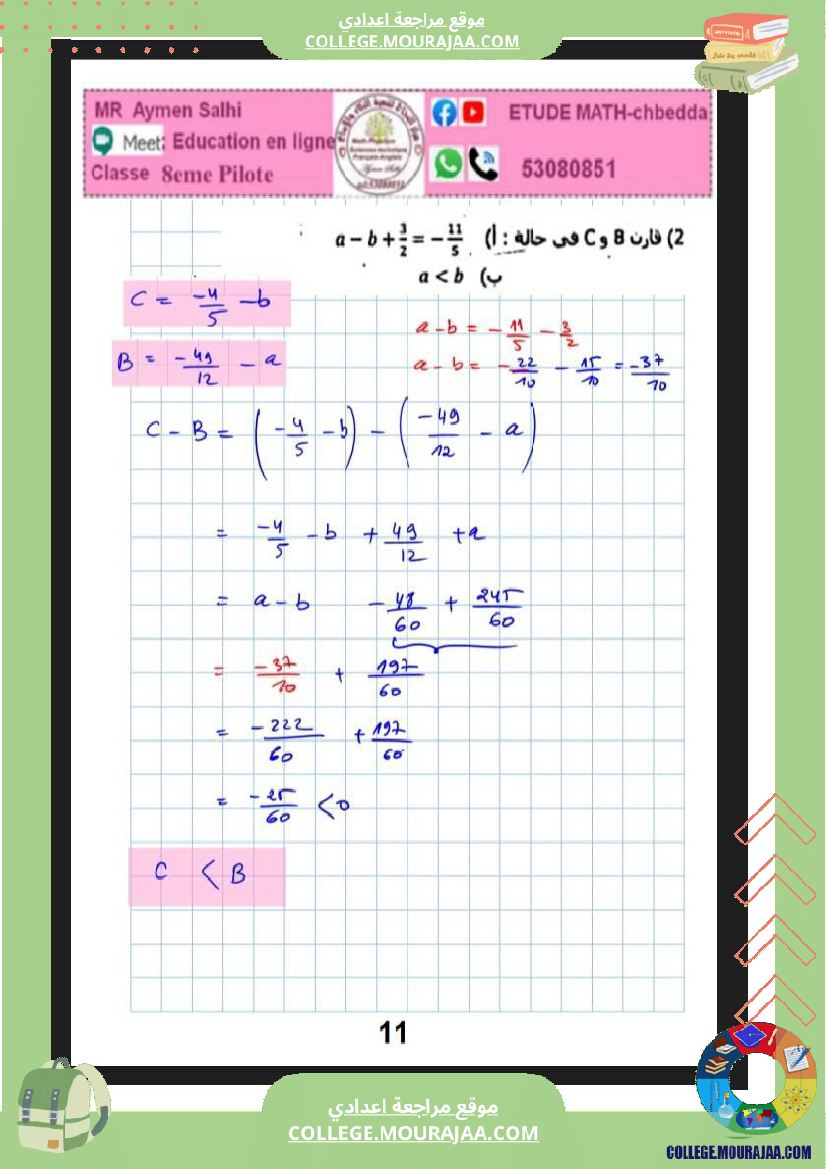 موقع مراجعة اعدادي
COLLEGE.MOURAJAA.COM
MR Aymen Salhi
Meet: Education en ligne
Classe 8eme Pilote
ETUDE MATH-chbedda
53080851
2) قارن B و C في حالة : أ) a − b + 3/2 = − 11/5
ب) a < b
C = -4/5 - b
a - b = - 11/5 - 3/2
B = -49/12 - a
a - b = - 22/10 - 15/10 = -37/10
C - B = (-4/5 - b) - (-49/12 - a)
= -4/5 - b + 49/12 + a
= a - b - 48/60 + 245/60
= -37/10 + 197/60
= -222/60 + 197/60
= -25/60 < 0
C < B
11
موقع مراجعة اعدادي
COLLEGE.MOURAJAA.COM
COLLEGE.MOURAJAA.COM